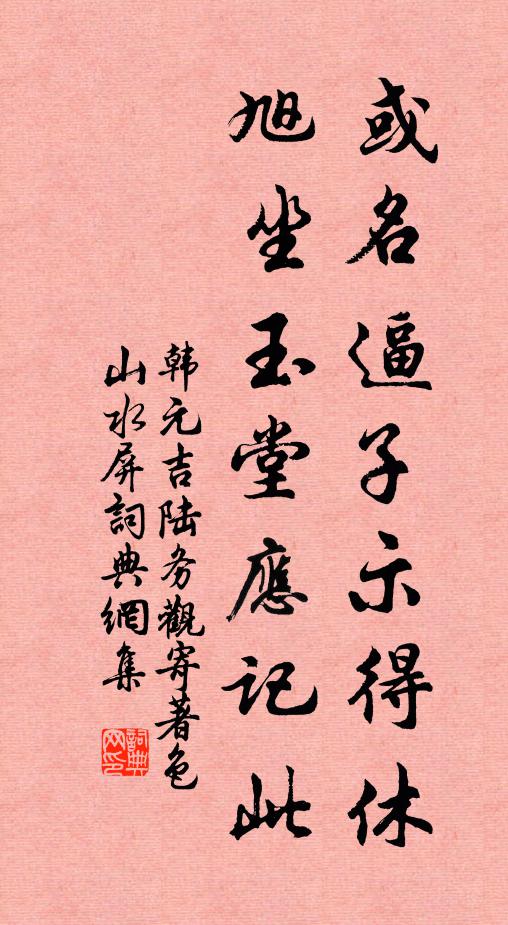 或名逼子示得休
旭坐玉堂應记此
韩元吉陆务觀寄著色
山水屏詞典網集
詞典网印